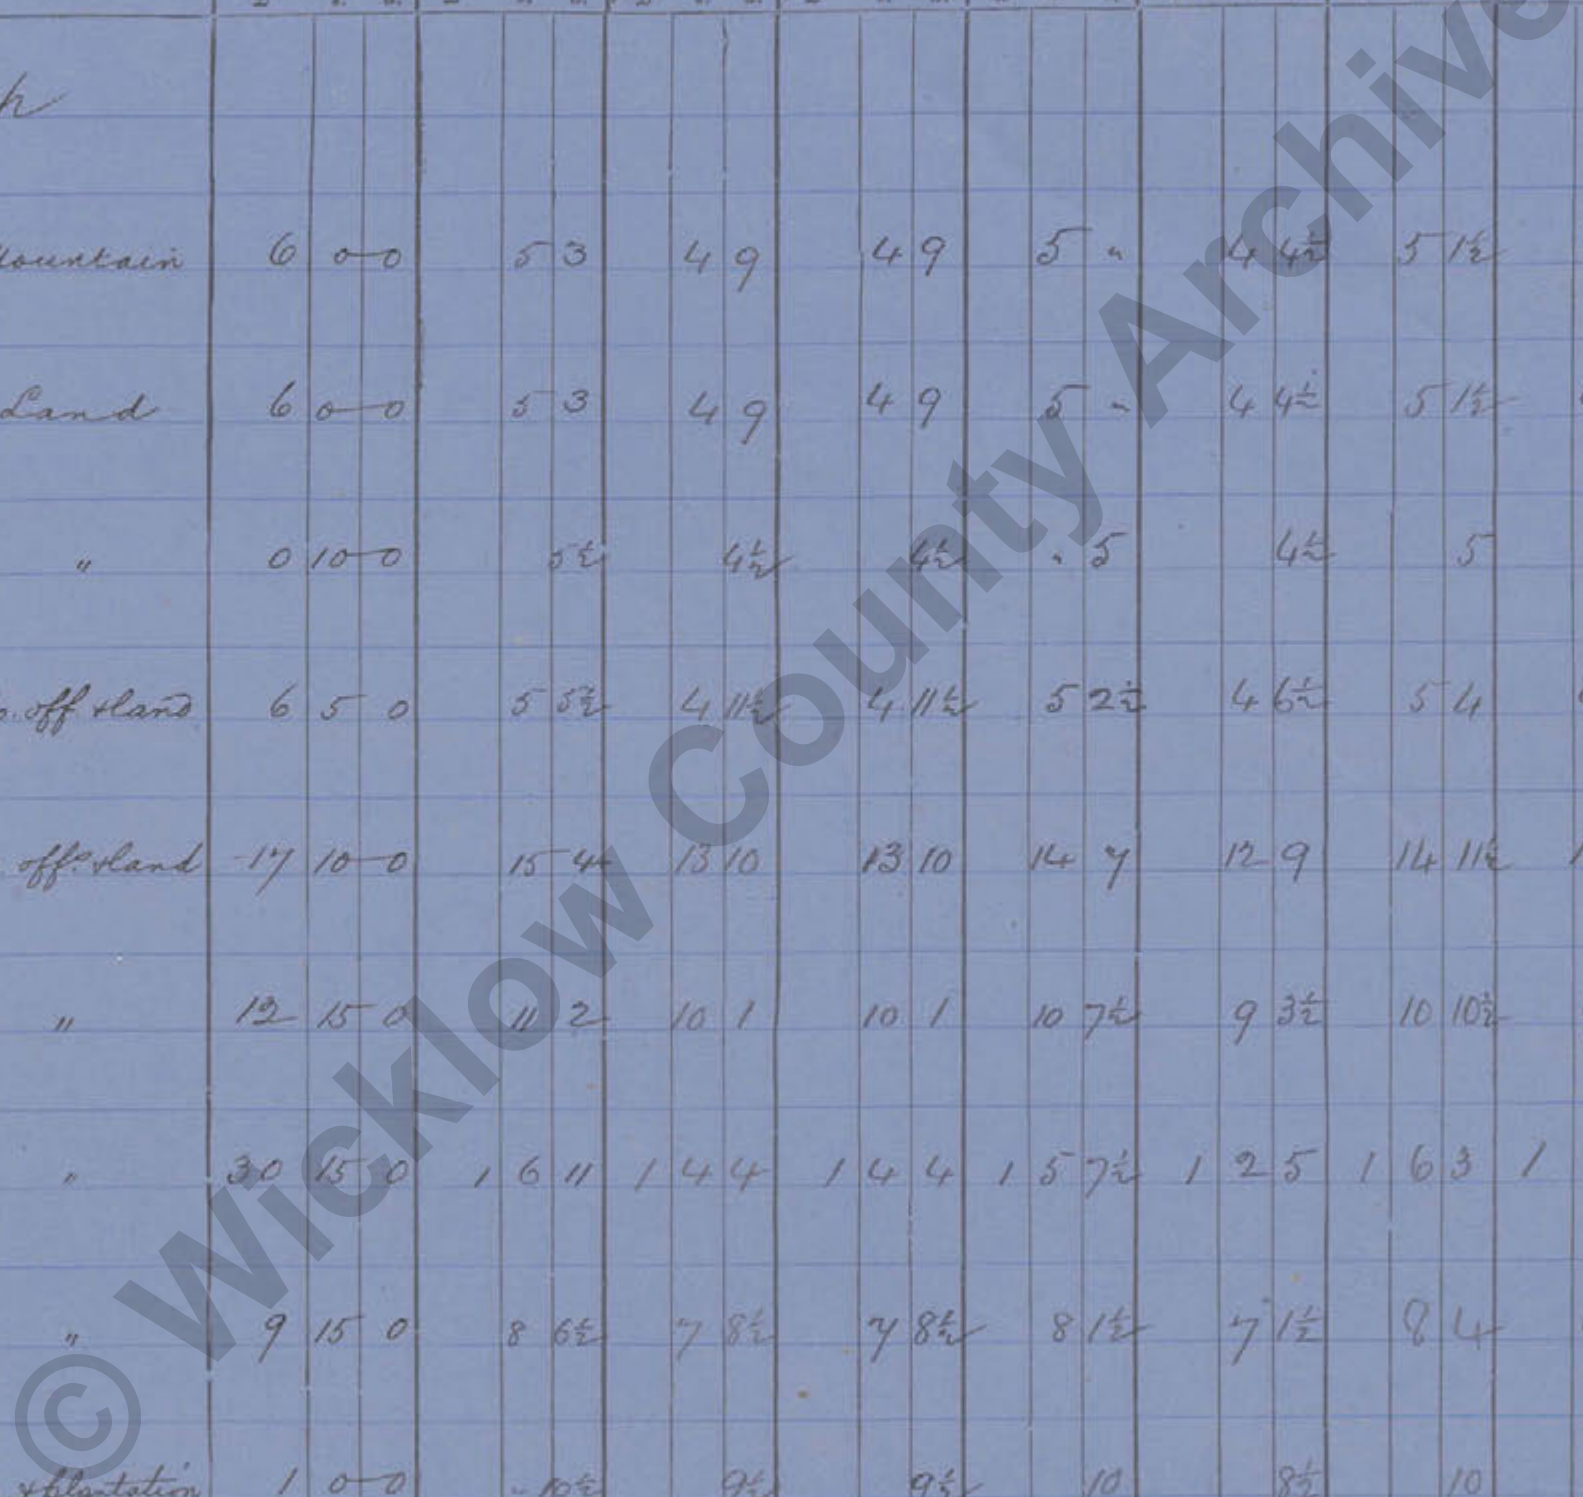 h
Mountain 6 0 0 5 3 4 9 4 9 5 " 4 4½ 5 1½
Land 6 0 0 5 3 4 9 4 9 5 - 4 4½ 5 1½
" 0 10 0 5½ 4½ 4½ - 5 4½ 5
o. off & land 6 5 0 5 5½ 4 11½ 4 11½ 5 2½ 4 6½ 5 4
offs & land 17 10 0 15 4 13 10 13 10 14 7 12 9 14 11½ 1
" 12 15 0 11 2 10 1 10 1 10 7½ 9 3½ 10 10½
" 30 15 0 1 6 11 1 4 4 1 4 4 1 5 7½ 1 2 5 1 6 3 1
" 9 15 0 8 6½ 7 8½ 7 8½ 8 1½ 7 1½ 8 4
& plantation 1 0 0 - 10½ 9½ 9½ 10 8½ 10
© Wicklow County Archive